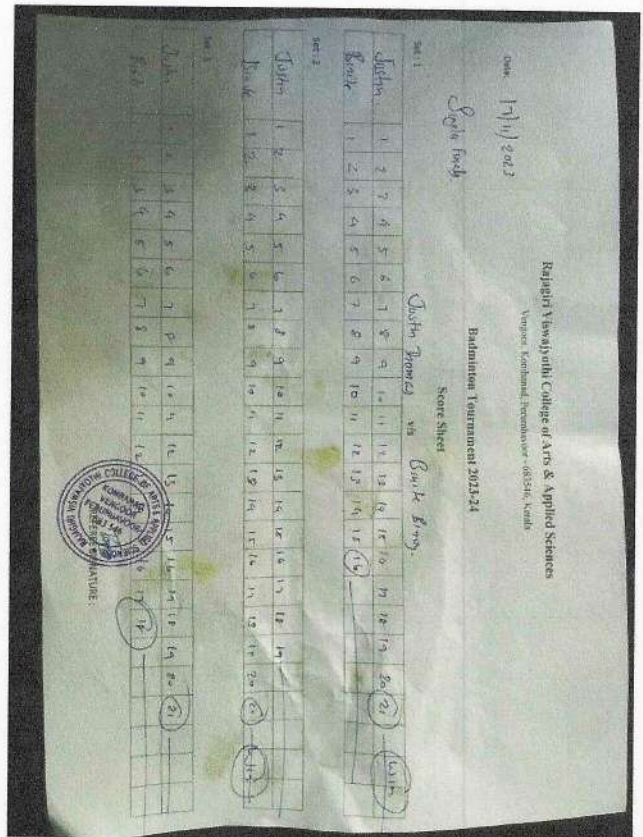 Rajagiri Viswajyothi College of Arts & Applied Sciences
Vengoor, Kombanad, Perumbavoor - 683546, Kerala
Badminton Tournament 2023-24
Date: 17/11/2023
Score Sheet
Justin Thomas v/s
Set : 1
Justin 1 2 3 4 5 6 7 8 9 10 11 12 13 14 15 16 17 18 19 20 21 - Win
1 2 3 4 5 6 7 8 9 10 11 12 13 14 15 16 -
Set : 2
Justin 1 2 3 4 5 6 7 8 9 10 11 12 13 14 15 16 17 18 19 -
1 2 3 4 5 6 7 8 9 10 11 12 13 14 15 16 17 18 19 20 21 - Win
Set : 3
Justin 1 2 3 4 5 6 7 8 9 10 11 12 13 15 16 17 18 19 20 21 -
3 4 5 6 7 8 9 10 11 12 16 17 18 -
RAJAGIRI VISWAJYOTHI COLLEGE OF ARTS & APPLIED SCIENCES
KOMBANAD
VENGOOR
PERUMBAVOOR
683 546
SIGNATURE :